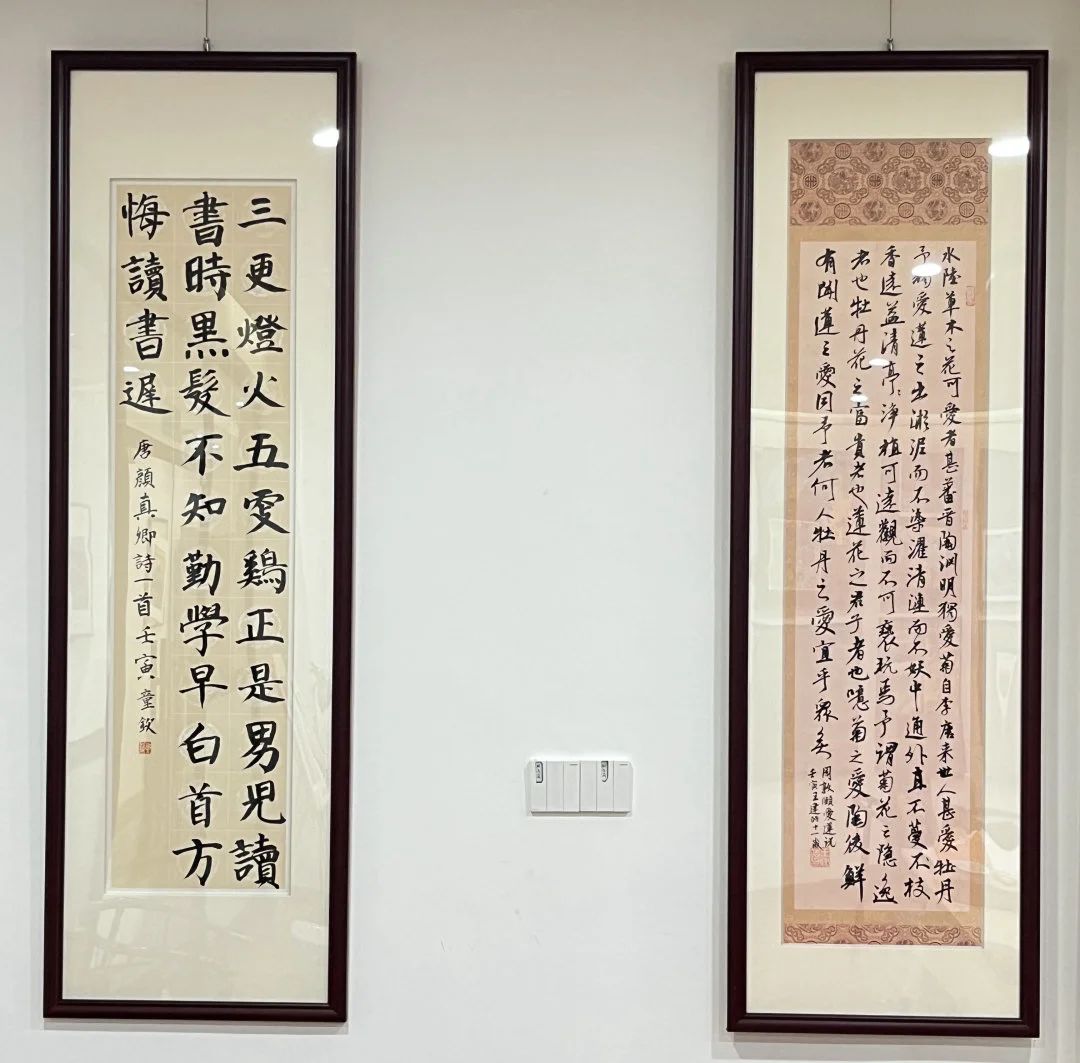 三更燈火五更鷄正是男児讀
書時黑髮不知勤學早白首方
悔讀書遲
唐顏真卿詩一首壬寅童欽
水陸草木之花可愛者甚蕃晋陶渊明獨愛菊自李唐来世人甚愛牡丹
予獨愛蓮之出淤泥而不染濯清漣而不妖中通外直不蔓不枝
香遠益清亭々淨植可遠觀而不可褻玩焉予謂菊花之隱逸
者也牡丹花之富貴者也蓮花之君子者也噫菊之愛陶後鮮
有聞蓮之愛同予者何人牡丹之愛宜乎衆矣
周敦頤愛蓮说
壬寅王建十一歲